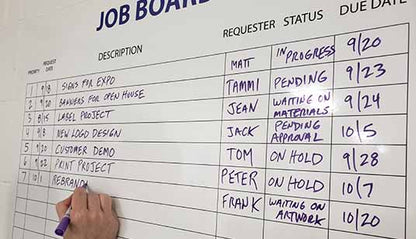 JOB BOARD
PRIORITY REQUEST DATE DESCRIPTION REQUESTER STATUS DUE DATE
1 9/8 SIGNS FOR EXPO MATT IN PROGRESS 9/20
2 9/20 BANNERS FOR OPEN HOUSE TAMMI PENDING 9/23
3 8/15 LABEL PROJECT JEAN WAITING ON MATERIALS 9/24
4 9/8 NEW LOGO DESIGN JACK PENDING APPROVAL 10/5
5 9/20 CUSTOMER DEMO TOM ON HOLD 9/28
6 9/22 PRINT PROJECT PETER ON HOLD 10/7
7 10/1 REBRAND FRANK WAITING ON ARTWORK 10/20